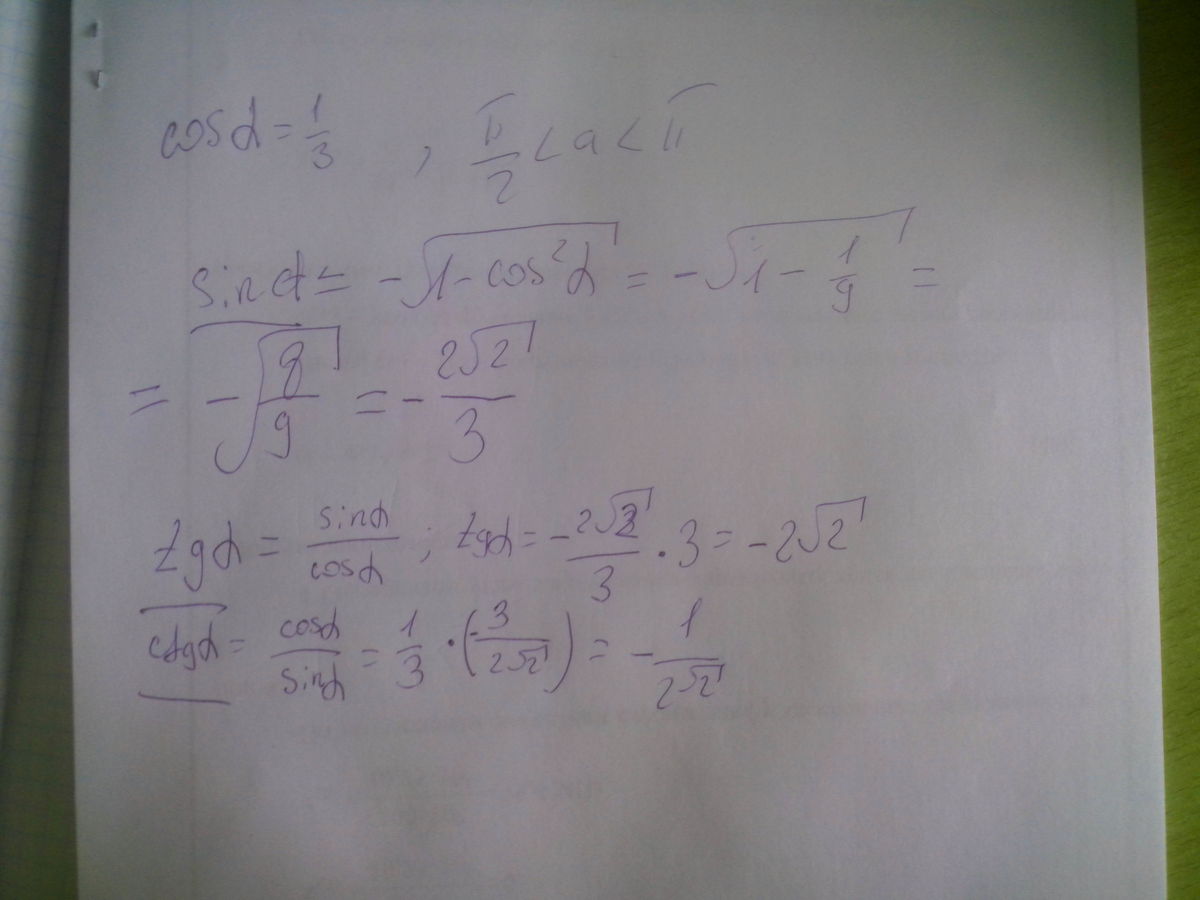 cosα = 1/3 , π/2 < a < π
sinα = -√(1 - cos²α) = -√(1 - 1/9) =
= -√(8/9) = -2√2/3
tgα = sinα/cosα ; tgα = -2√2/3 · 3 = -2√2
ctgα = cosα/sinα = 1/3 · (-3/2√2) = -1/2√2